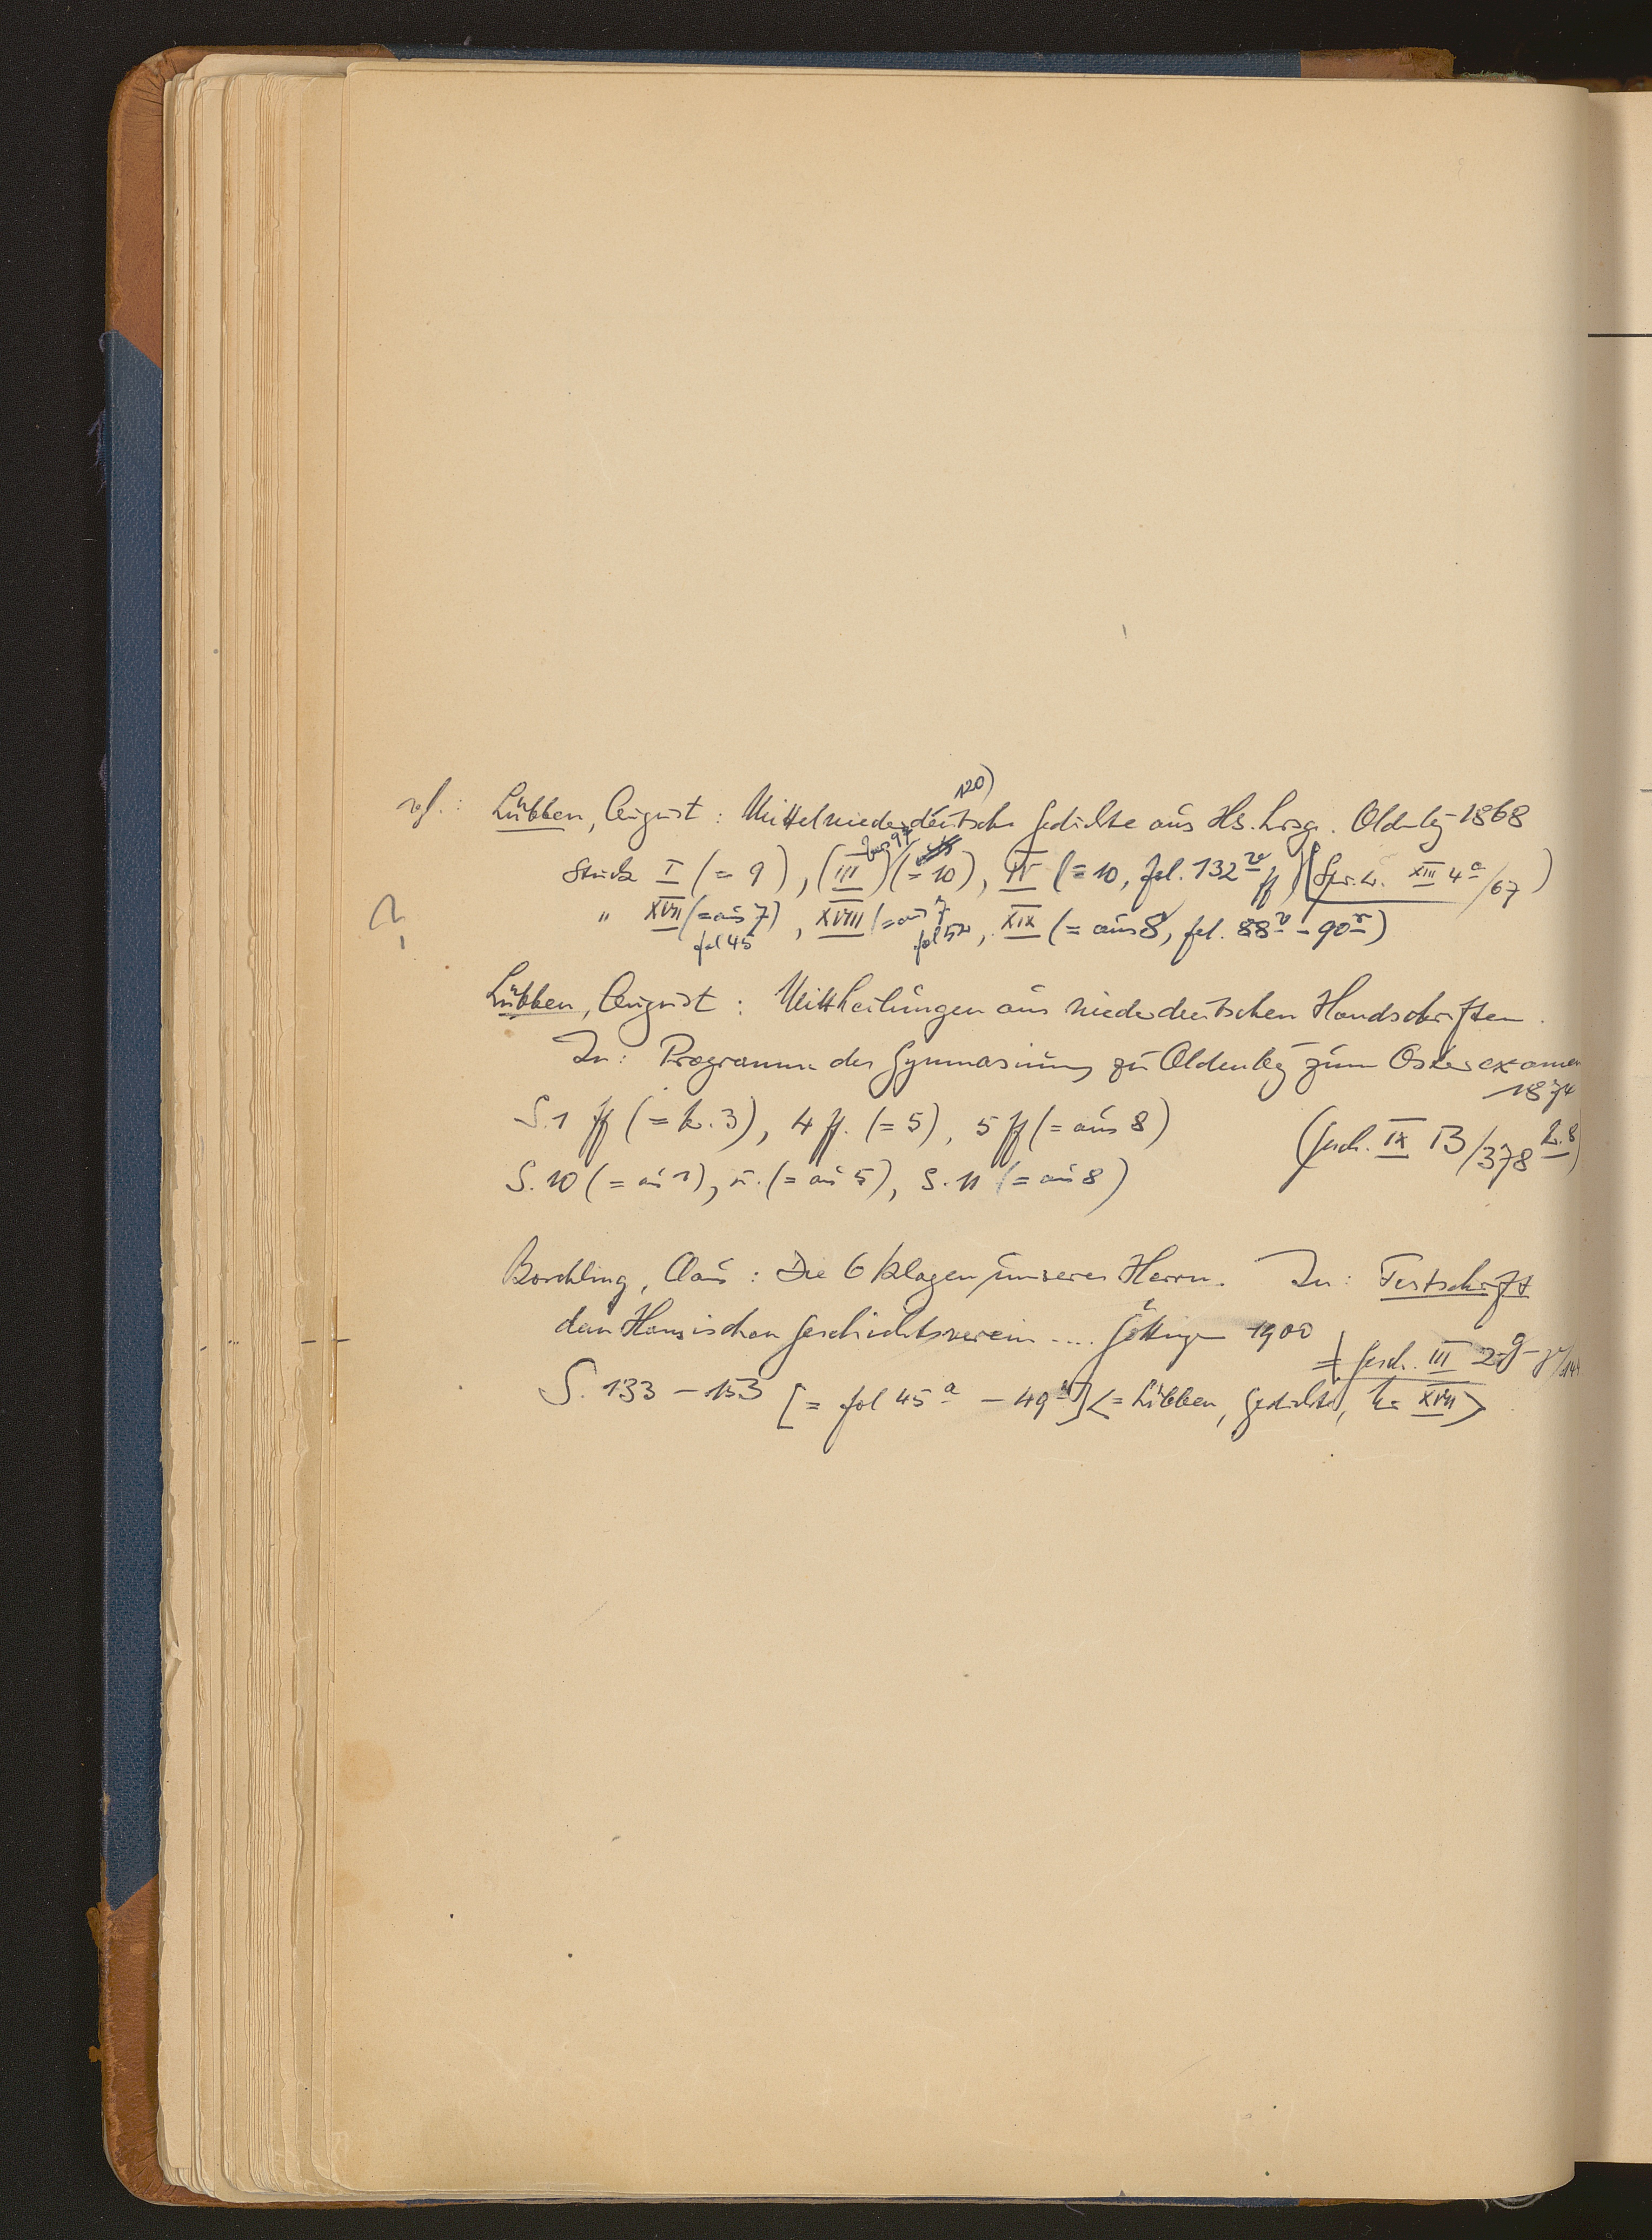 vgl.: Lübben, August: Mittelniederdeutsche Gedichte aus Hs. hrsg. Oldenbg 1868
120)
Stück I (= 9), (III) (= 10), IV (= 10, fol. 132v ff) (Spr. L. XIII 4a/67)
" XVII (= aus 7) fol 45, XVIII (= aus 7 fol 52, XIX (= aus 8, fol. 88v - 90r)
Lübben, August: Mittheilungen aus niederdeutschen Handschriften.
In: Programm des Gymnasiums zu Oldenbg zum Osterexamen
1874
S. 1 ff (= Nr. 3), 4 ff. (= 5), 5 ff (= aus 8) (Gesch. IX B/378 2.8)
S. 10 (= aus 1), u. (= aus 5), S. 11 (= aus 8)
Borchling, Claus: Die 6 Klagen unseres Herrn. In: Festschrift
dem Hansischen Geschichtsverein .... Göttingen 1900
Gesch. III 2
S. 133 - 153 [= fol 45a - 49a] <= Lübben, Gedichte, Nr XVII>